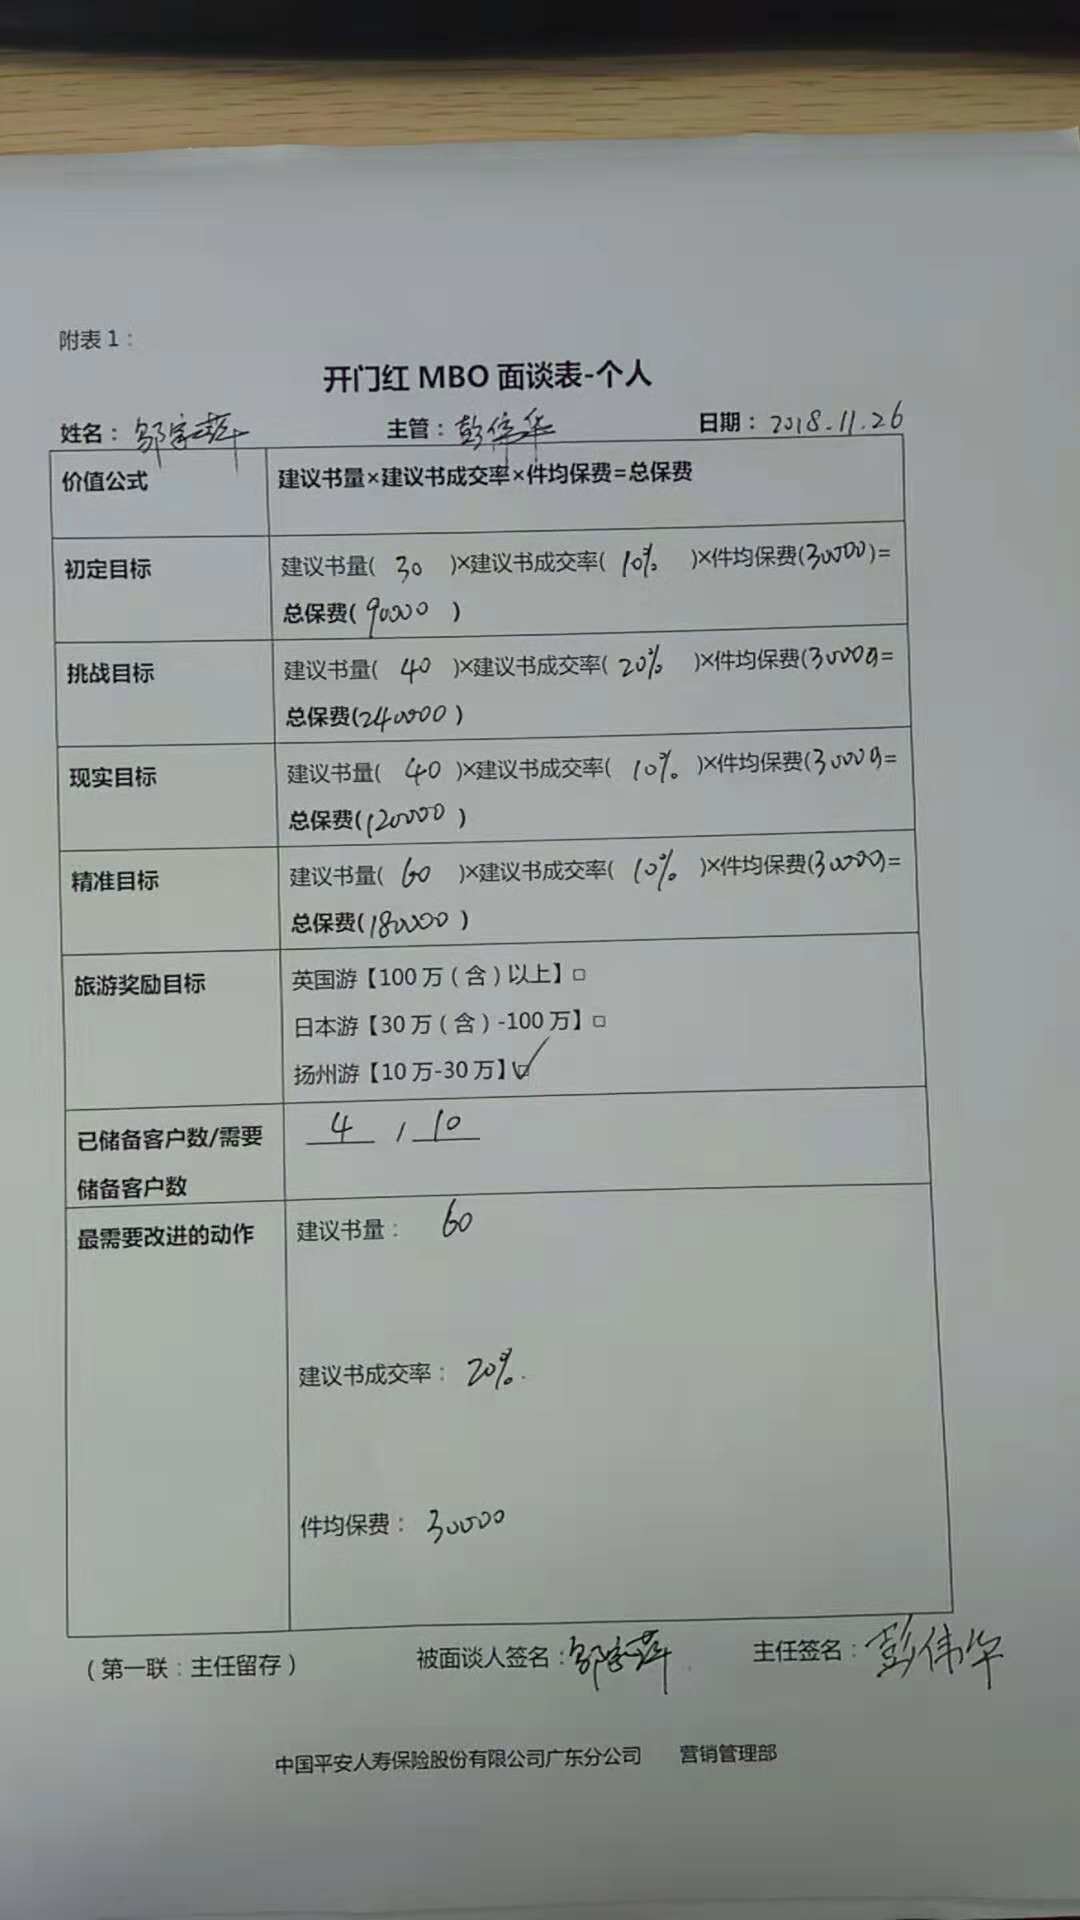 附表1：
开门红 MBO 面谈表-个人
姓名：邹 主管：彭伟华 日期：2018.11.26
价值公式 建议书量×建议书成交率×件均保费=总保费
初定目标 建议书量( 30 )×建议书成交率( 10% )×件均保费(30000)=
总保费( 90000 )
挑战目标 建议书量( 40 )×建议书成交率( 20% )×件均保费(30000)=
总保费(240000 )
现实目标 建议书量( 40 )×建议书成交率( 10% )×件均保费(30000)=
总保费(120000 )
精准目标 建议书量( 60 )×建议书成交率( 10% )×件均保费(30000)=
总保费(180000 )
旅游奖励目标 英国游【100万（含）以上】□
日本游【30万（含）-100万】□
扬州游【10万-30万】☑
已储备客户数/需要 4 / 10
储备客户数
最需要改进的动作 建议书量： 60
建议书成交率： 20%.
件均保费： 30000
（第一联：主任留存） 被面谈人签名：邹 主任签名：彭伟华
中国平安人寿保险股份有限公司广东分公司 营销管理部